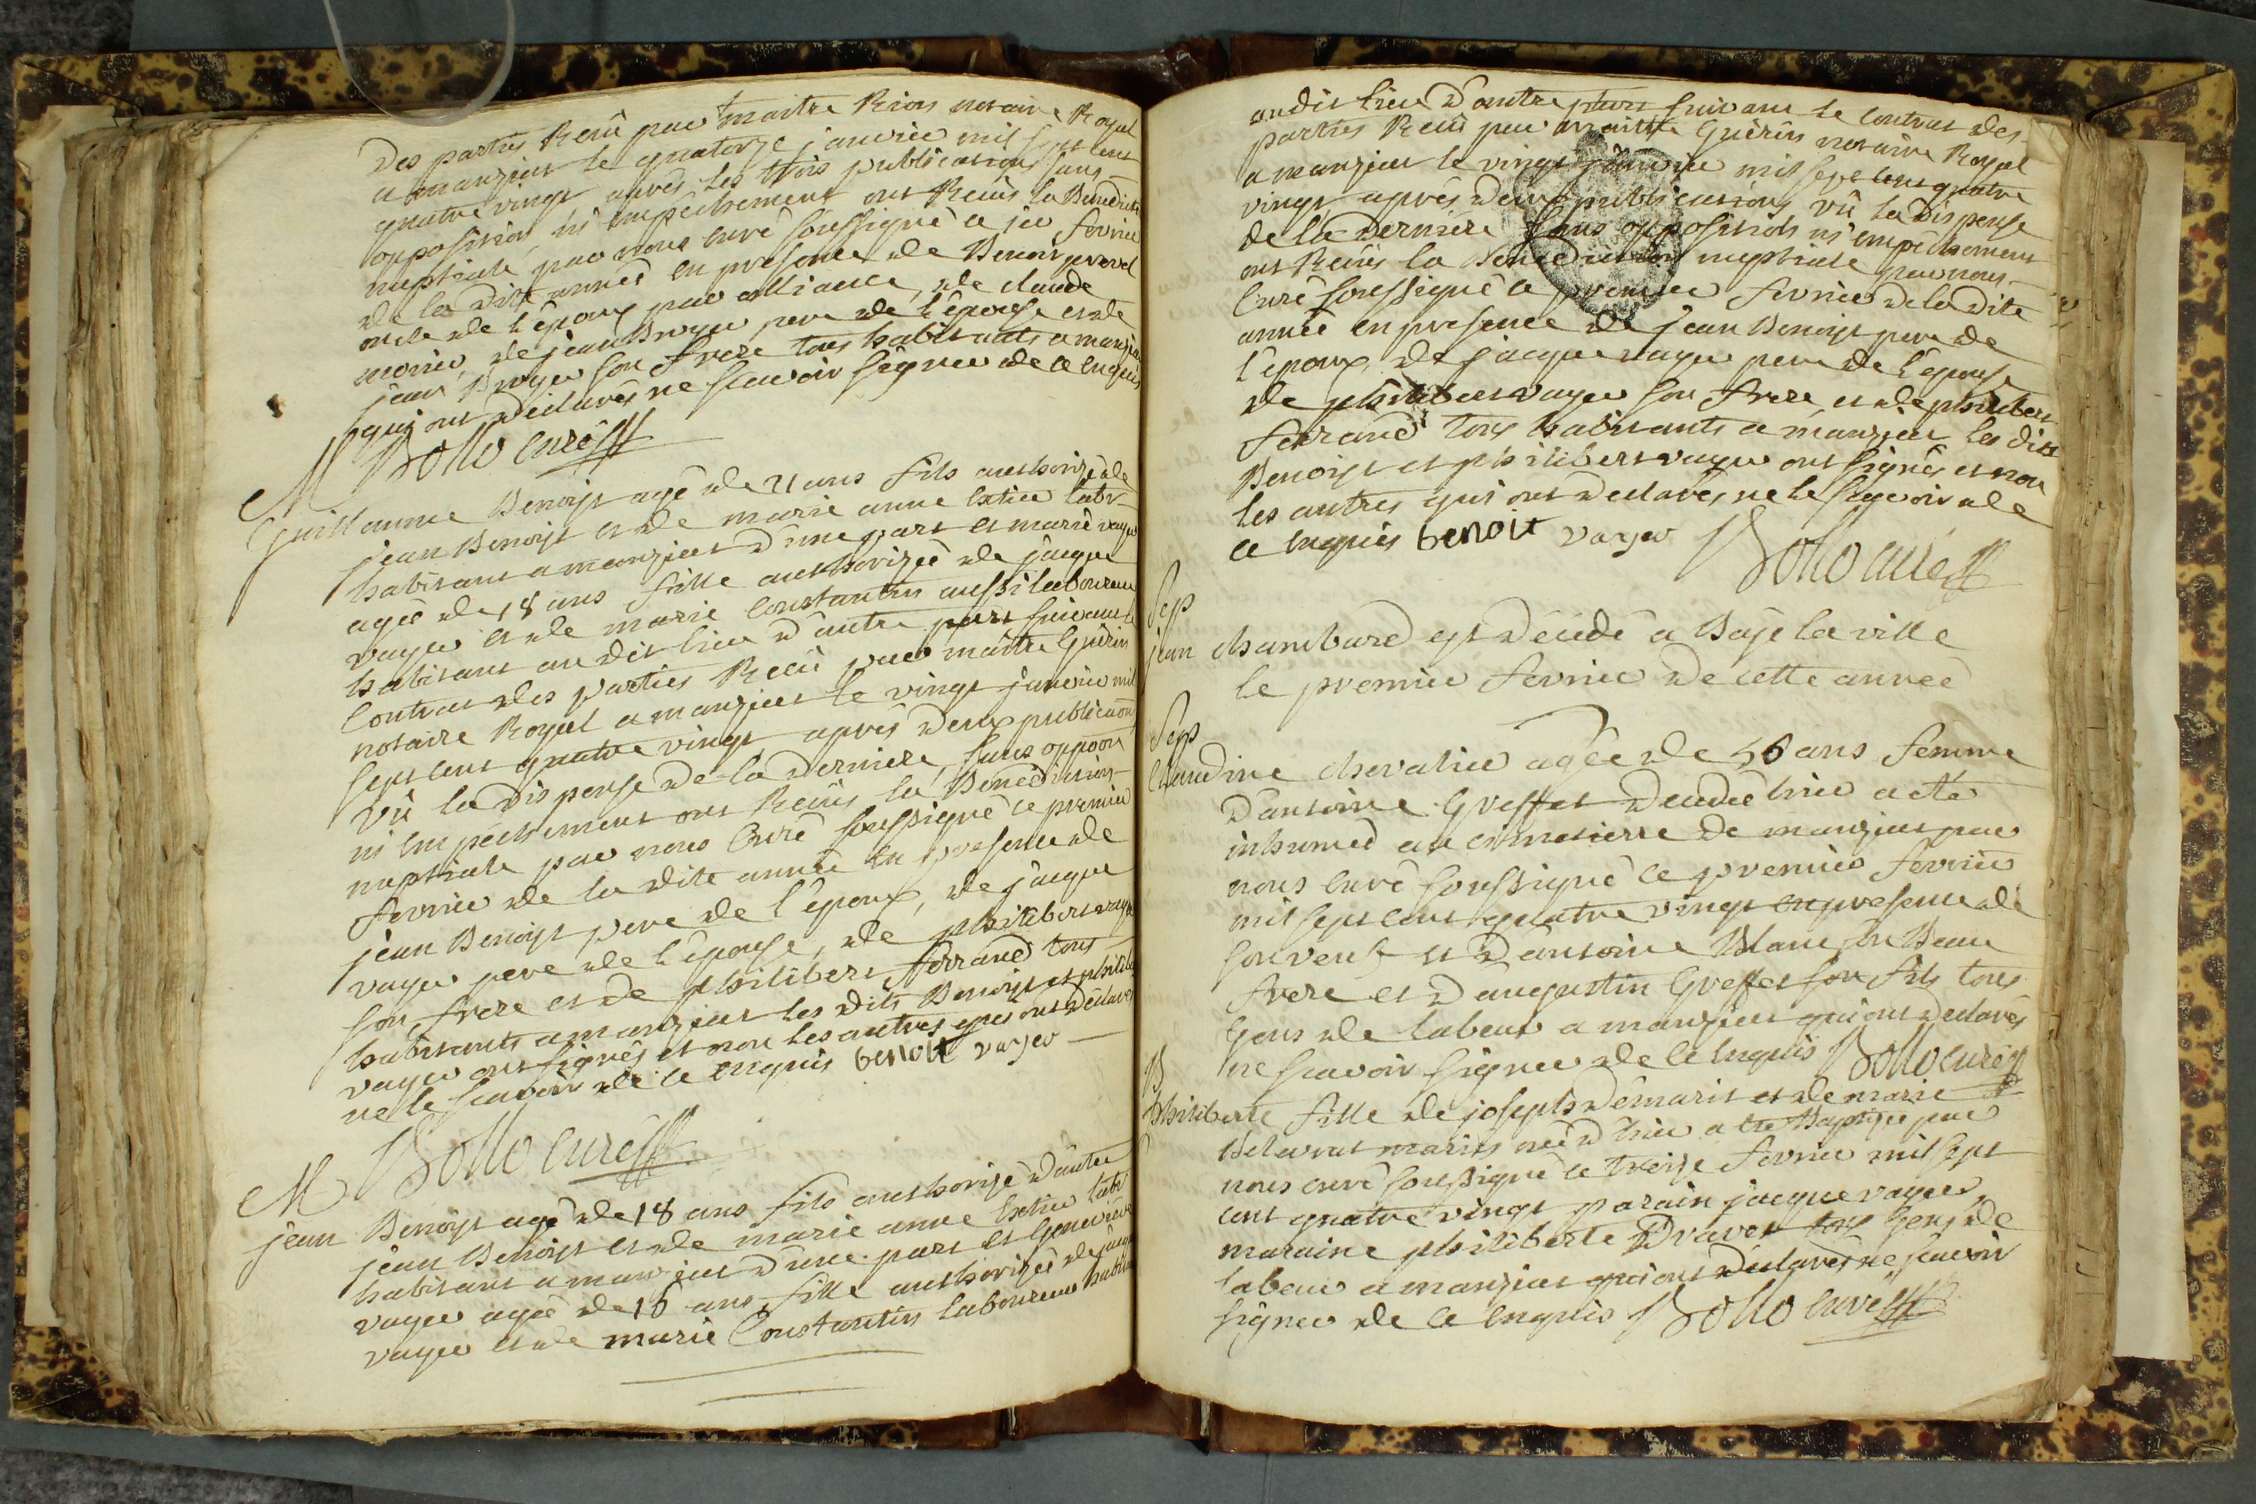 Des parties Recû par maitre Rion notaire Royal
a manziat le quatorze janvier mil sept cent
quatre vingt aprés les trois publications sans
opposition ni empéchement ont Recûs la Benedict
nuptiale par nous curé soussigné ce fevrier
de la dite année en presence de Benoit
oncle de l'époux par alliance, de claude
de jean Broyer pere de l'épouse et de
jean Broyer son frere tous habitants a manziat
qui ont déclarés ne scavoir signer de ce enquis
curé
M
Guillaume Benoist agé de 21 ans fils authorizé de
jean Benoist et de marie anne labr
habitant a manziat d'une part et marie vayer
agée de 18 ans fille authorizée de jacque
vayer et de marie Constantin aussi laboureur
habitant au dit lieu d'autre part suivant le
Contrat des parties Recû par maitre Guérin
notaire Royal a manziat le vingt janvier mil
sept cent quatre vingt aprés deux publications
vû la dispense de la derniere, sans
ni empéchement ont Recûs la Benédiction
nuptiale par nous Curé soussigné ce premier
fevrier de la dite année en presence de
jean Benoist pere de l'époux, de jacque
vayer pere de l'épouse, de philibert vayer
son frere et de philibert ferrand tous
habitants a manziat les dits Benoist et philibe
vayer ont signés et non les autres qui ont déclarés
ne le scavoir de ce enquis benoit vayer
curé
M
jean Benoist agé de 18 ans fils authorizé d'autre
jean Benoist et de marie anne labr
habitant a manziat d'une part et Genevieve
vayer agée de 16 ans fille authorizée de jacque
vayer et de marie Constantin laboureur habitant
audit lieu d'autre part suivant le contrat des
parties Recû par maitre Guérin notaire Royal
a manziat le vingt janvier mil sept cent quatre
vingt aprés deux publications vû la dispense
de la derniére sans opposition ni empéchement
ont Recûs la Benediction nuptiale par nous
Curé soussigné ce premier fevrier de la dite
année en presence de jean Benoist pere de
l'époux, de jacque vayer pere de l'épouse
de philibert vayer son frere et de philibert
ferrand tous habitants a manziat les dits
Benoist et philibert vayer ont signés et non
les autres qui ont declarés ne le sçavoir de
ce enquis benoit vayer curé
Sep
jean chambard est décédé a Bagé la ville
le premier fevrier de cette année
Sep
Claudine chevalier agée de 56 ans femme
d'antoine Greffet decedée hier a été
inhumée au cimetierre de manziat par
nous curé soussigné ce premier fevrier
mil sept cent quatre vingt en presence de
son veuf et d'antoine Blanc son Beau
frere et d'augustin Greffet son fils tous
Gens de labeur a manziat qui ont declarés
ne scavoir signer de ce enquis curé
B
philiberte fille de joseph Démaris et de marie
mariés née d'hier a été Baptizée par
nous curé soussigné ce treize fevrier mil sept
cent quatre vingt parain jacque vayer
maraine philiberte tous Gens de
labeur a manziat qui ont déclarés ne scavoir
signer de ce enquis curé